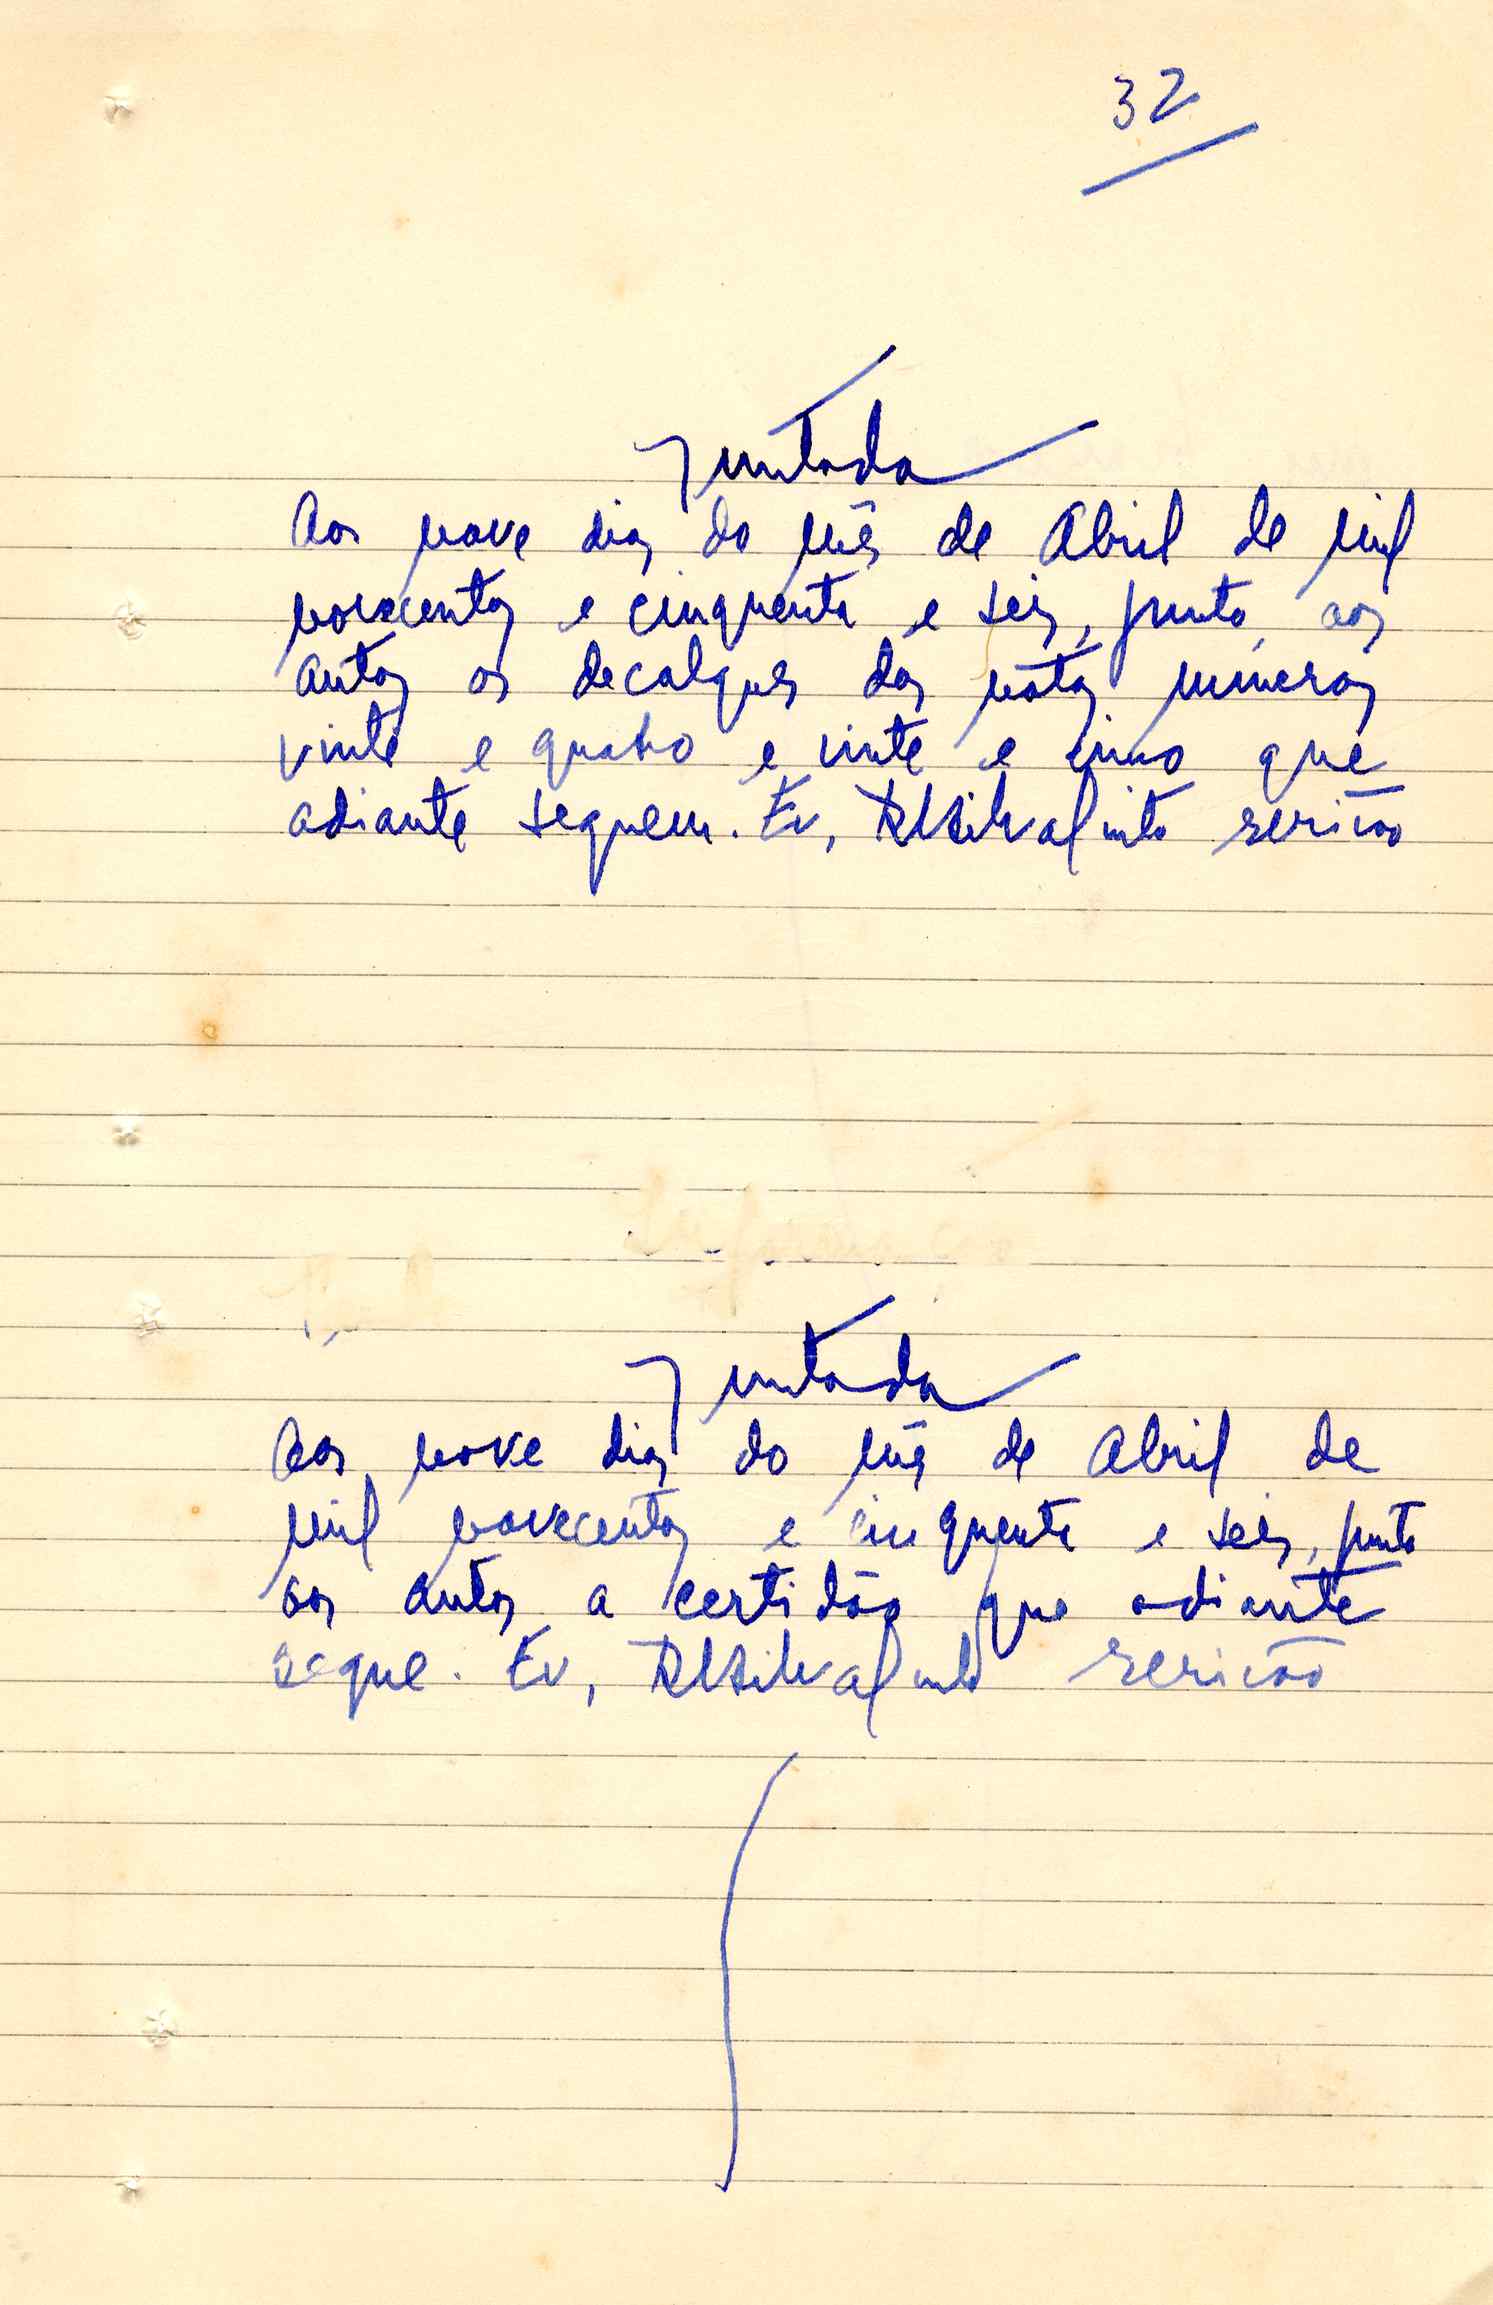 32
Juntada
Aos nove dias do mês de Abril de mil
novecentos e cinquenta e seis, junto aos
autos os decalques das notas numeros
vinte e quatro e vinte e cinco que
adiante seguem. Eu, escrivão
Juntada
Aos nove dias do mês de Abril de
mil novecentos e cinquenta e seis, junto
aos autos a certidão que adiante
segue. Eu, escrivão